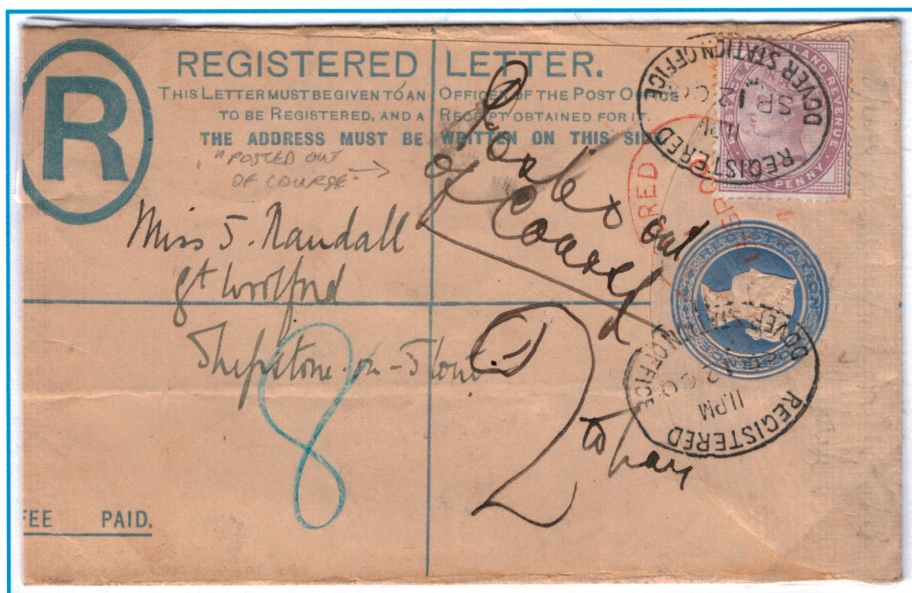 R
REGISTERED LETTER.
THIS LETTER MUST BE GIVEN TO AN OFFICER OF THE POST OFFICE
TO BE REGISTERED, AND A RECEIPT OBTAINED FOR IT.
THE ADDRESS MUST BE WRITTEN ON THIS SIDE.
"POSTED OUT
OF COURSE"
out
of Course
Miss J. Randall
Gt Wolford
Shipston-on-Stour
8
2
to pay
FEE PAID.
INLAND REVENUE
PENNY
REGISTERED
DOVER STATION OFFICE
11 PM
SP 12 00
REGISTRATION
REGISTERED
DOVER STATION OFFICE
11 PM